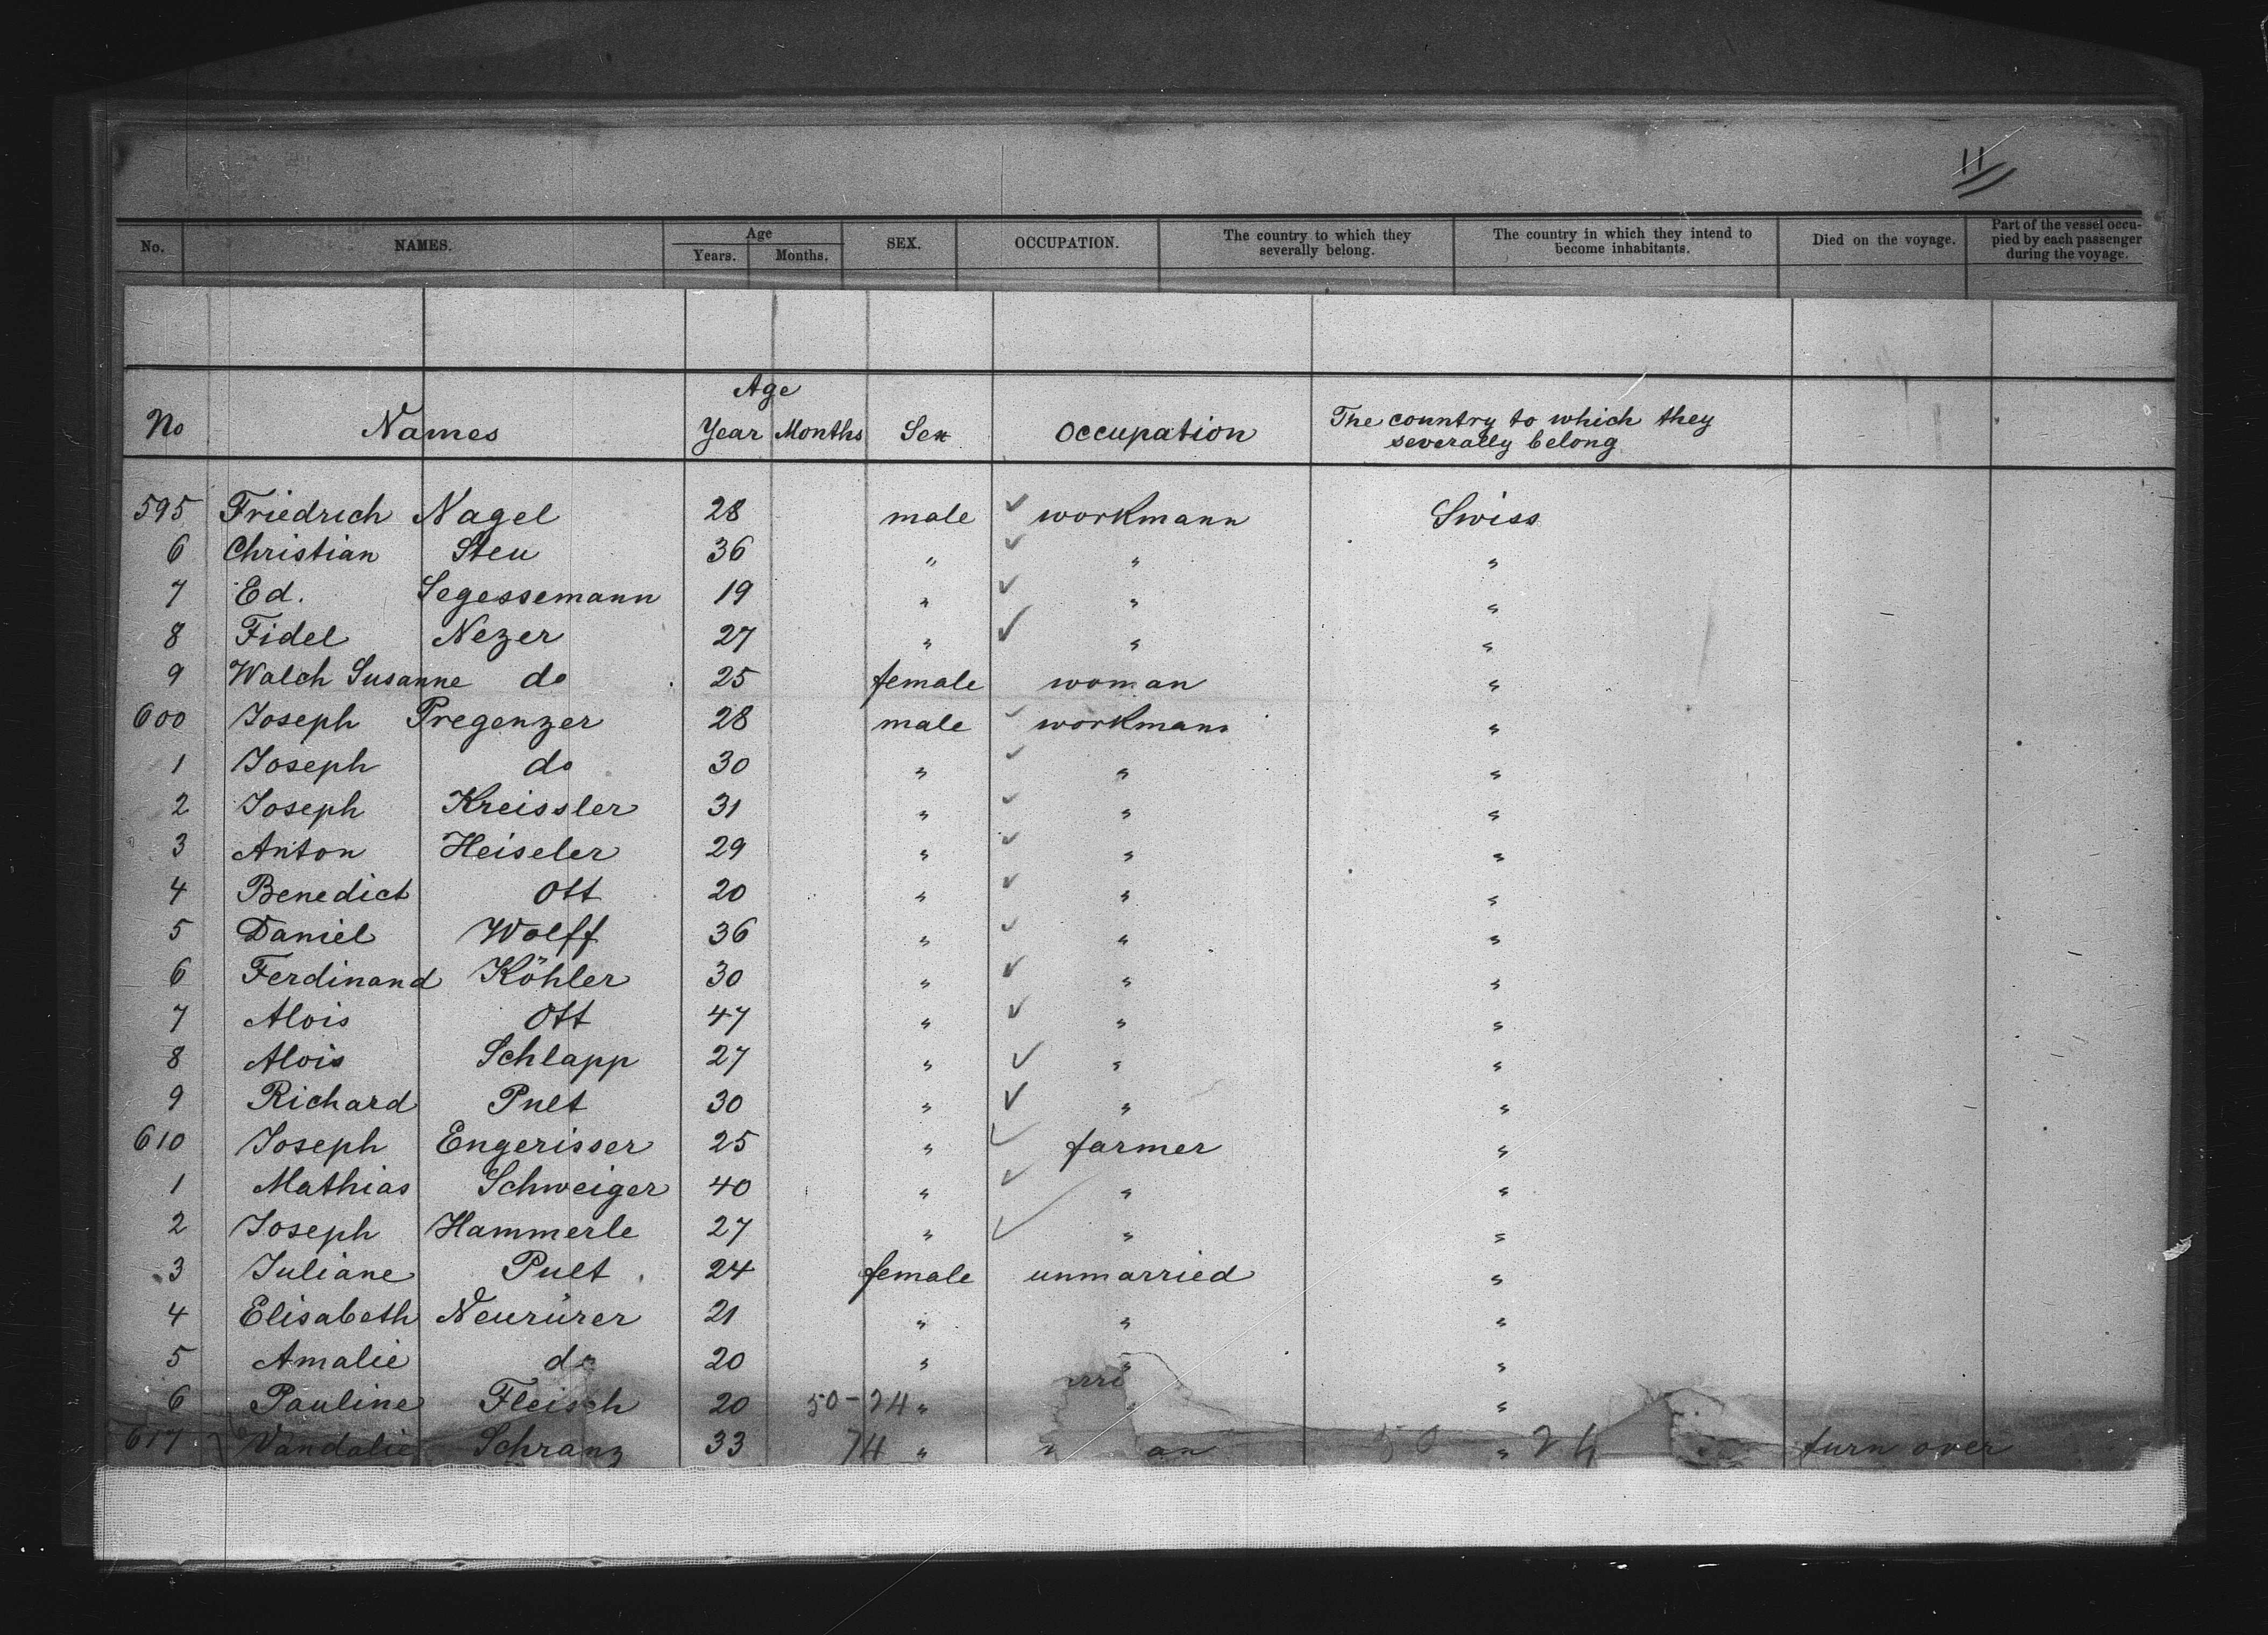 11
No. NAMES. Age Years. Months. SEX. OCCUPATION. The country to which they severally belong. The country in which they intend to become inhabitants. Died on the voyage. Part of the vessel occupied by each passenger during the voyage.
No Names Age Year Months Sex Occupation The country to which they severally belong
595 Friedrich Nagel 28 male workmann Swiss
6 Christian Steu 36 " " "
7 Ed. Segessemann 19 " " "
8 Fidel Nezer 27 " " "
9 Walch Susanne do 25 female woman "
600 Joseph Pregenzer 28 male workmann "
1 Joseph do 30 " " "
2 Joseph Kreissler 31 " " "
3 Anton Heiseler 29 " " "
4 Benedict Ott 20 " " "
5 Daniel Wolff 36 " " "
6 Ferdinand Köhler 30 " " "
7 Alois Ott 47 " " "
8 Alois Schlapp 27 " " "
9 Richard Puet 30 " " "
610 Joseph Engerisser 25 " farmer "
1 Mathias Schweiger 40 " " "
2 Joseph Hammerle 27 " " "
3 Juliane Puet 24 female unmarried "
4 Elisabeth Neurürer 21 " " "
5 Amalie do 20 " " "
6 Pauline Fleisch 20 50-24 " "
617 Vandalie Schranz 33 74 " " turn over